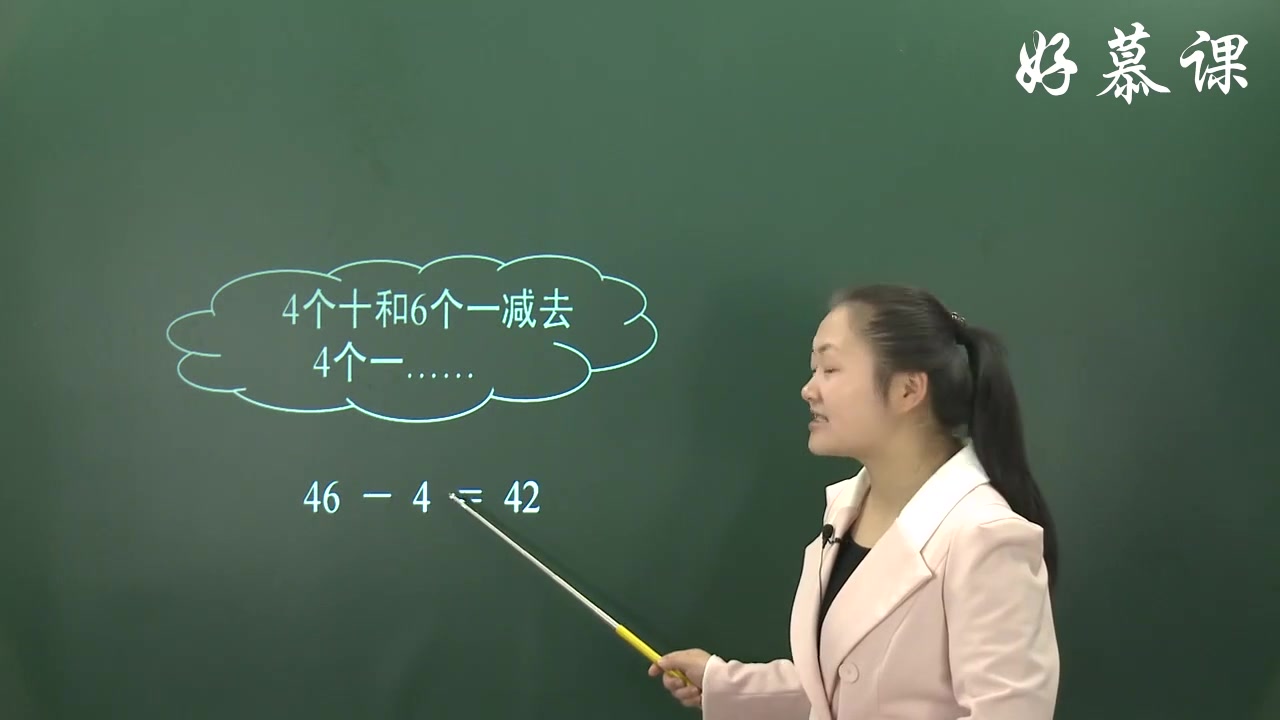 好慕课
4个十和6个一减去
4个一……
46 － 4 = 42